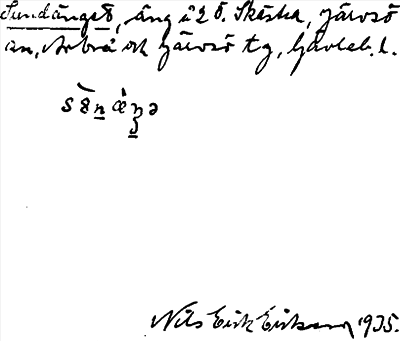 Sundänget, äng i 2 Ö. Skästra, Järvsö
sn, Arbrå och Järvsö tg, Gävleb. l.
Nils Erik Eriksson 1935.